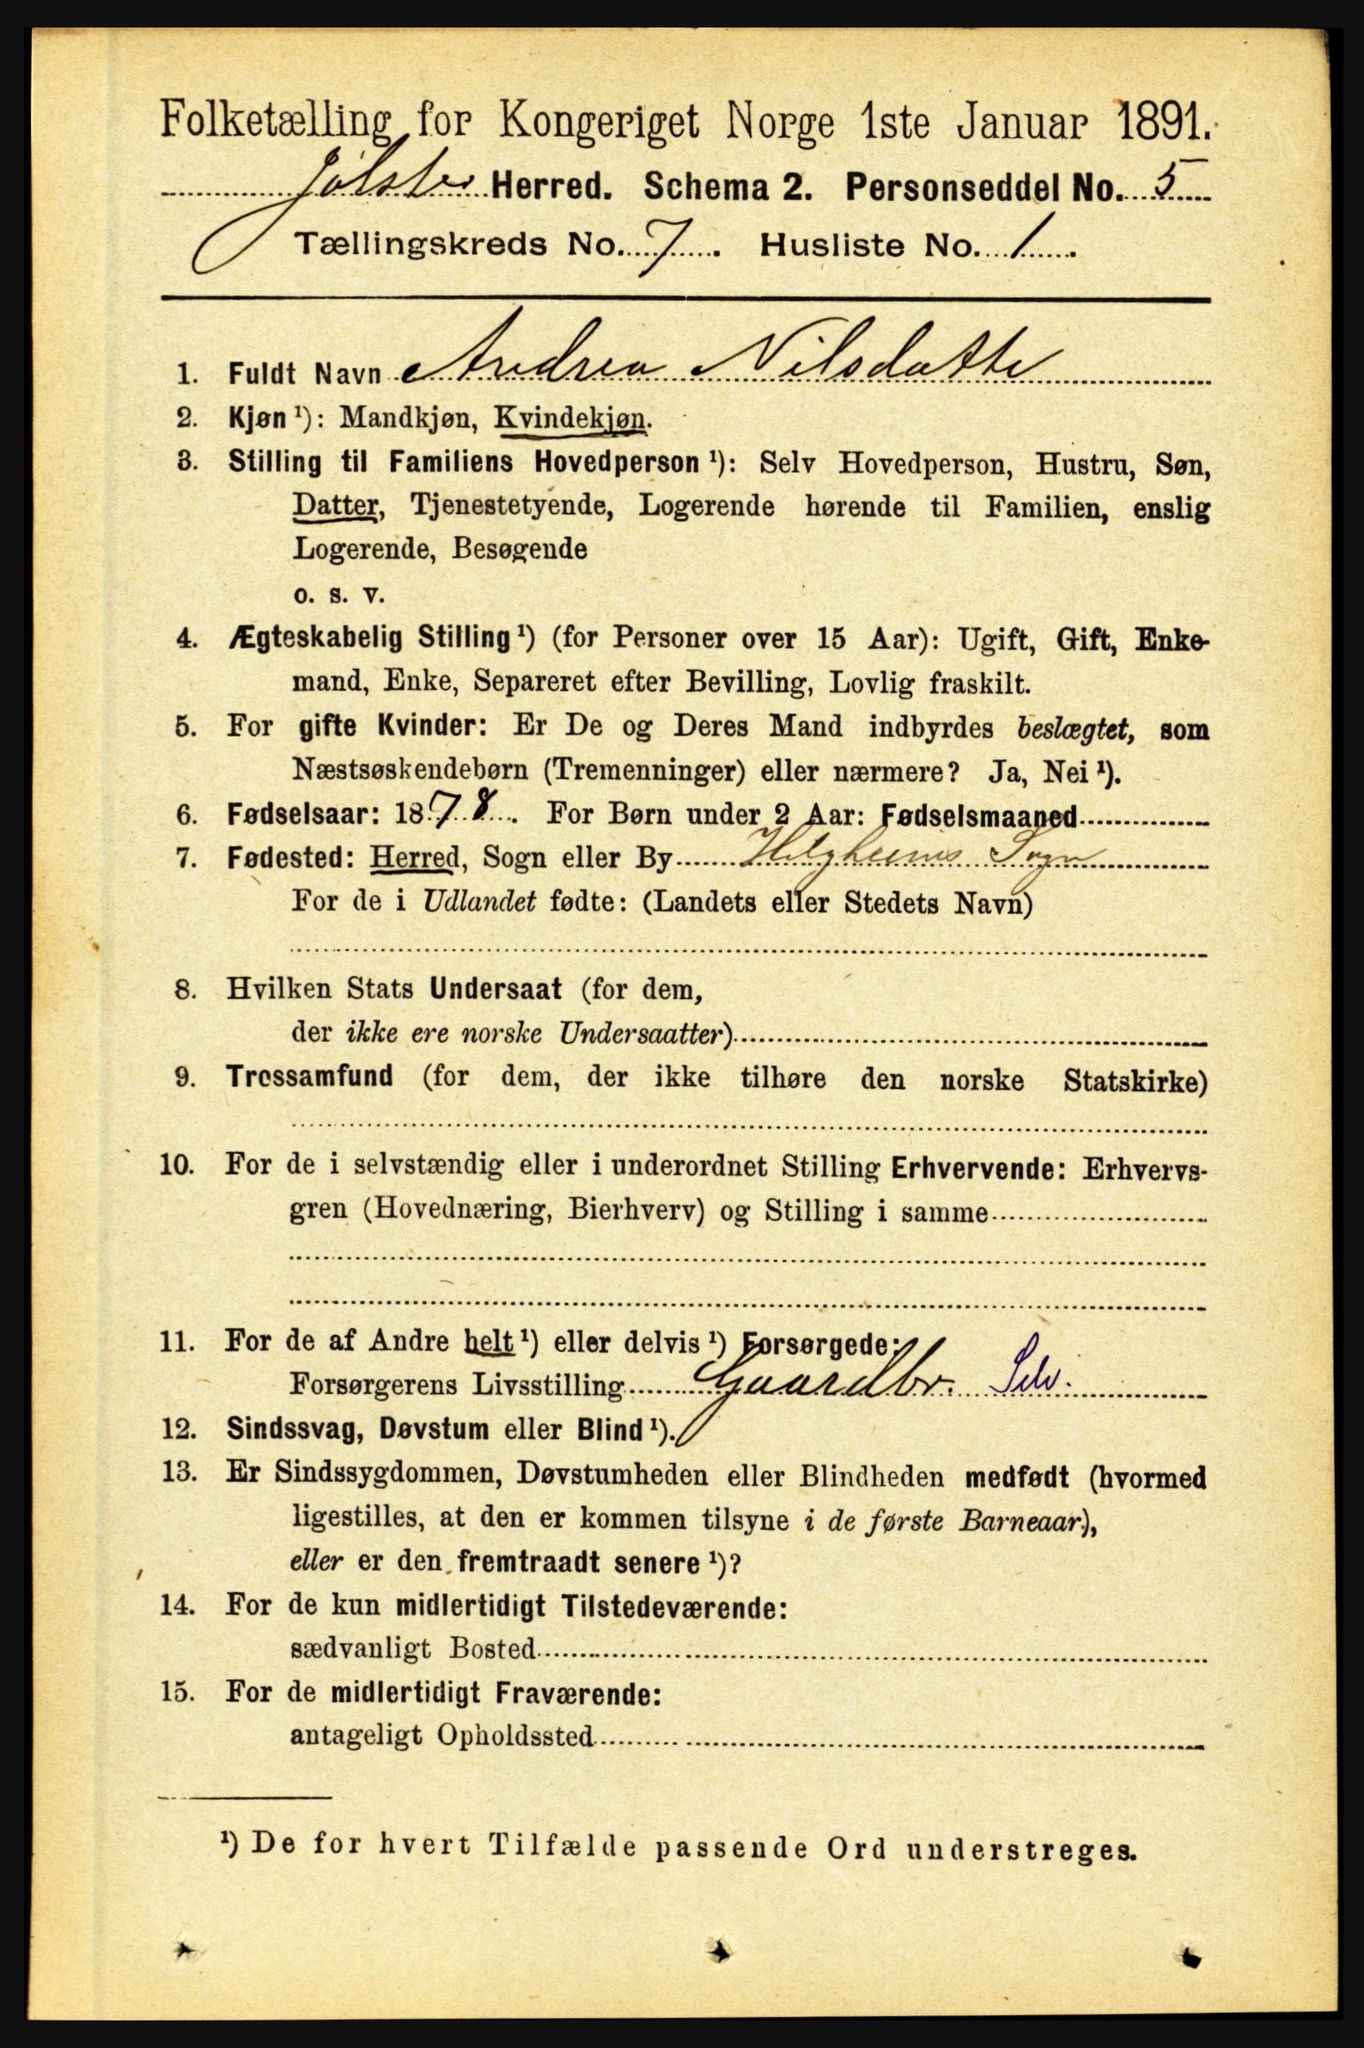 Folketælling for Kongeriget Norge 1ste Januar 1891.
Jølster Herred. Schema 2. Personseddel No. 5
Tællingskreds No. 7. Husliste No. 1.
1. Fuldt Navn Andrea Nilsdatte
2. Kjøn ¹): Mandkjøn, Kvindekjøn.
3. Stilling til Familiens Hovedperson ¹): Selv Hovedperson, Hustru, Søn,
Datter, Tjenestetyende, Logerende hørende til Familien, enslig
Logerende, Besøgende
o. s. v.
4. Ægteskabelig Stilling ¹) (for Personer over 15 Aar): Ugift, Gift, Enke-
mand, Enke, Separeret efter Bevilling, Lovlig fraskilt.
5. For gifte Kvinder: Er De og Deres Mand indbyrdes beslægtet, som
Næstsøskendebørn (Tremenninger) eller nærmere? Ja, Nei ¹).
6. Fødselsaar: 1878. For Børn under 2 Aar: Fødselsmaaned
7. Fødested: Herred, Sogn eller By Helgheims Sogn
For de i Udlandet fødte: (Landets eller Stedets Navn)
8. Hvilken Stats Undersaat (for dem,
der ikke ere norske Undersaatter)
9. Trossamfund (for dem, der ikke tilhøre den norske Statskirke)
10. For de i selvstændig eller i underordnet Stilling Erhvervende: Erhvervs-
gren (Hovednæring, Bierhverv) og Stilling i samme
11. For de af Andre helt ¹) eller delvis ¹) Forsørgede:
Forsørgerens Livsstilling Gaardbr. Selv.
12. Sindssvag, Døvstum eller Blind ¹).
13. Er Sindssygdommen, Døvstumheden eller Blindheden medfødt (hvormed
ligestilles, at den er kommen tilsyne i de første Barneaar),
eller er den fremtraadt senere ¹)?
14. For de kun midlertidigt Tilstedeværende:
sædvanligt Bosted
15. For de midlertidigt Fraværende:
antageligt Opholdssted
¹) De for hvert Tilfælde passende Ord understreges.